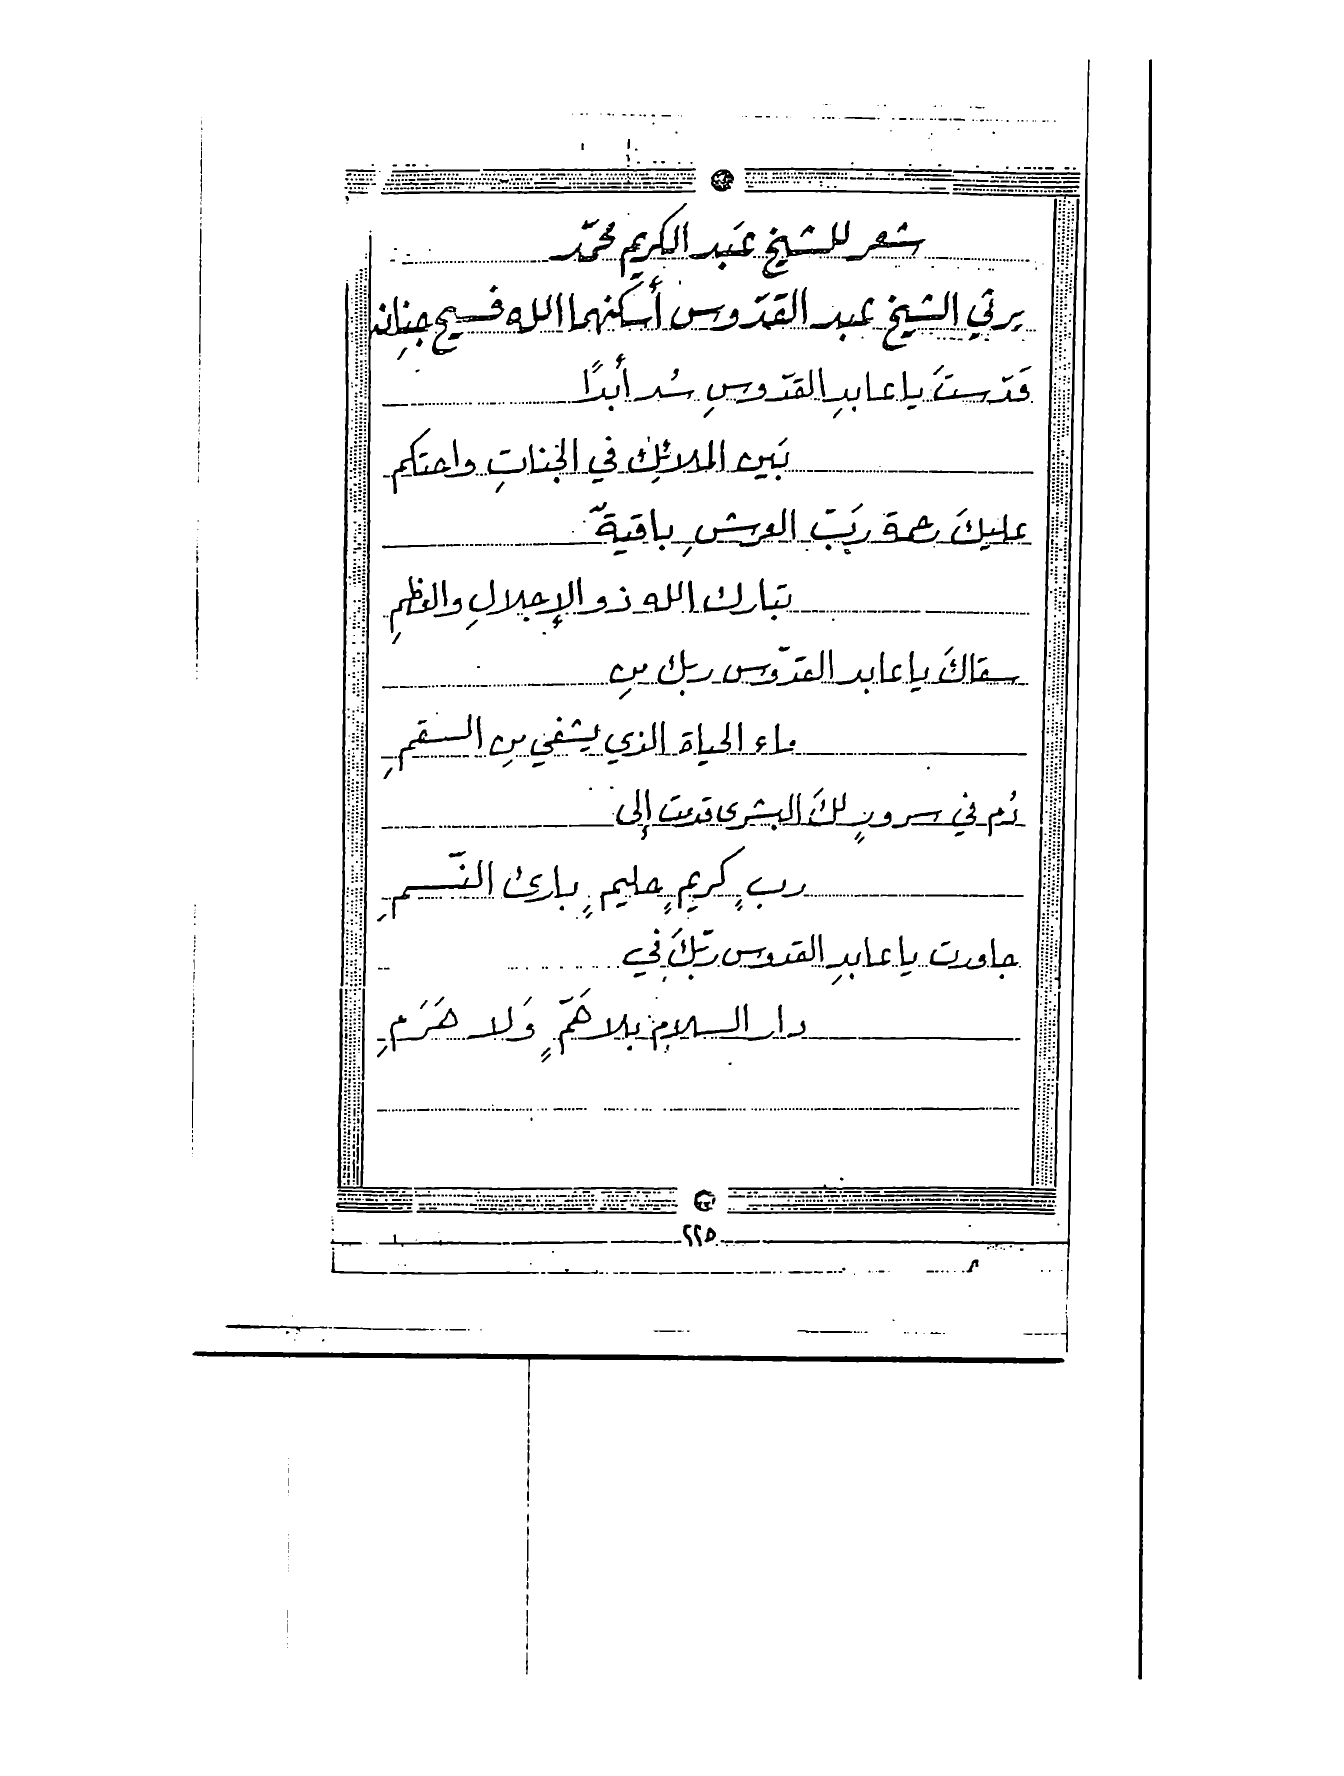 شعر للشيخ عَبد الكريم محمّد
يرثي الشيخ عبد القدّوس أسكنهما الله فسيح جِنانه
قَدّستَ يا عابدِ القدّوسِ سُد أبدًا
بَين الملائِك في الجناتِ واحتكمِ
عليكَ رحمة رَبّ العرشِ باقيةٌ
تبارك الله ذو الإجلالِ والعظمِ
سقاكَ يا عابد القدّوس ربك مِن
ماء الحياة الذي يشفي مِن السقمِ
دُم في سرورٍ لكَ البشرى قدمت إلى
ربٍ كريمٍ حليمٍ بارئ النّسمِ
جاورت يا عابدِ القدوس ربّكَ في
دار السلام بلا هَمّ ٍ وَلا هَرَمِ
٢٢٥